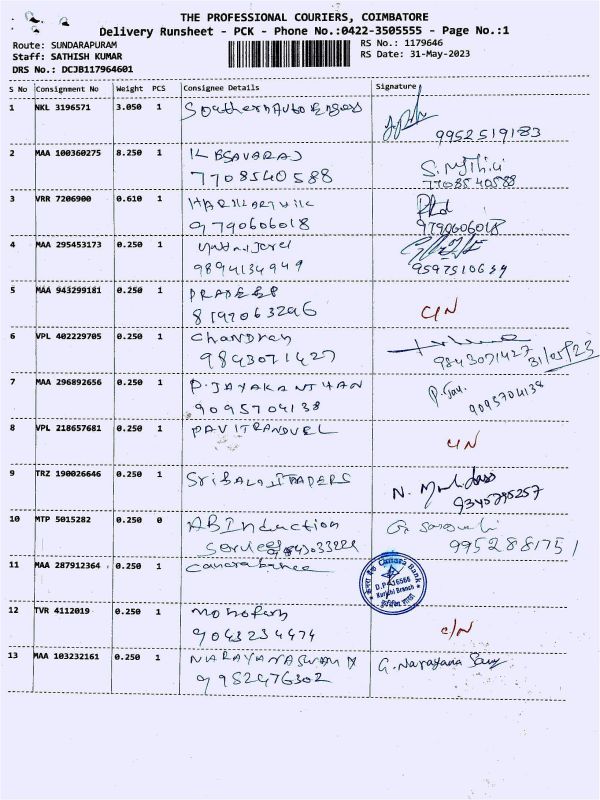 THE PROFESSIONAL COURIERS, COIMBATORE
Delivery Runsheet - PCK - Phone No.:0422-3505555 - Page No.:1
Route: SUNDARAPURAM RS No.: 1179646
Staff: SATHISH KUMAR RS Date: 31-May-2023
DRS No.: DCJB117964601
S No Consignment No Weight PCS Consignee Details Signature
1 NKL 3196571 3.050 1 Southern Auto Engees
9952519183
2 MAA 100360275 8.250 1
7708540588 77085 40588
3 VRR 7206900 0.610 1
9790606018 9790606018
4 MAA 295453173 0.250 1
9894134949 9597510639
5 MAA 943299181 0.250 1 PRADEEP
8197063296 C/N
6 VPL 402229705 0.250 1 Chandran
9843071427 9843071427 31/05/23
7 MAA 296892656 0.250 1 P. JAYAKANTHAN P. Jay.
9095704138 9095704138
8 VPL 218657681 0.250 1 PAVITRANDVEL
C/N
9 TRZ 190026646 0.250 1 SRI BALAJI TRADERS N.
9345795257
10 MTP 5015282 0.250 0 AB Induction
Services 9952881751
11 MAA 287912364 0.250 1 Canara bank
Canara Bank
D.P.
Kurichi Branch
12 TVR 4112019 0.250 1
9043234474 C/N
13 MAA 103232161 0.250 1 NARAYANASWAMY G. Narayana Samy
9952476302